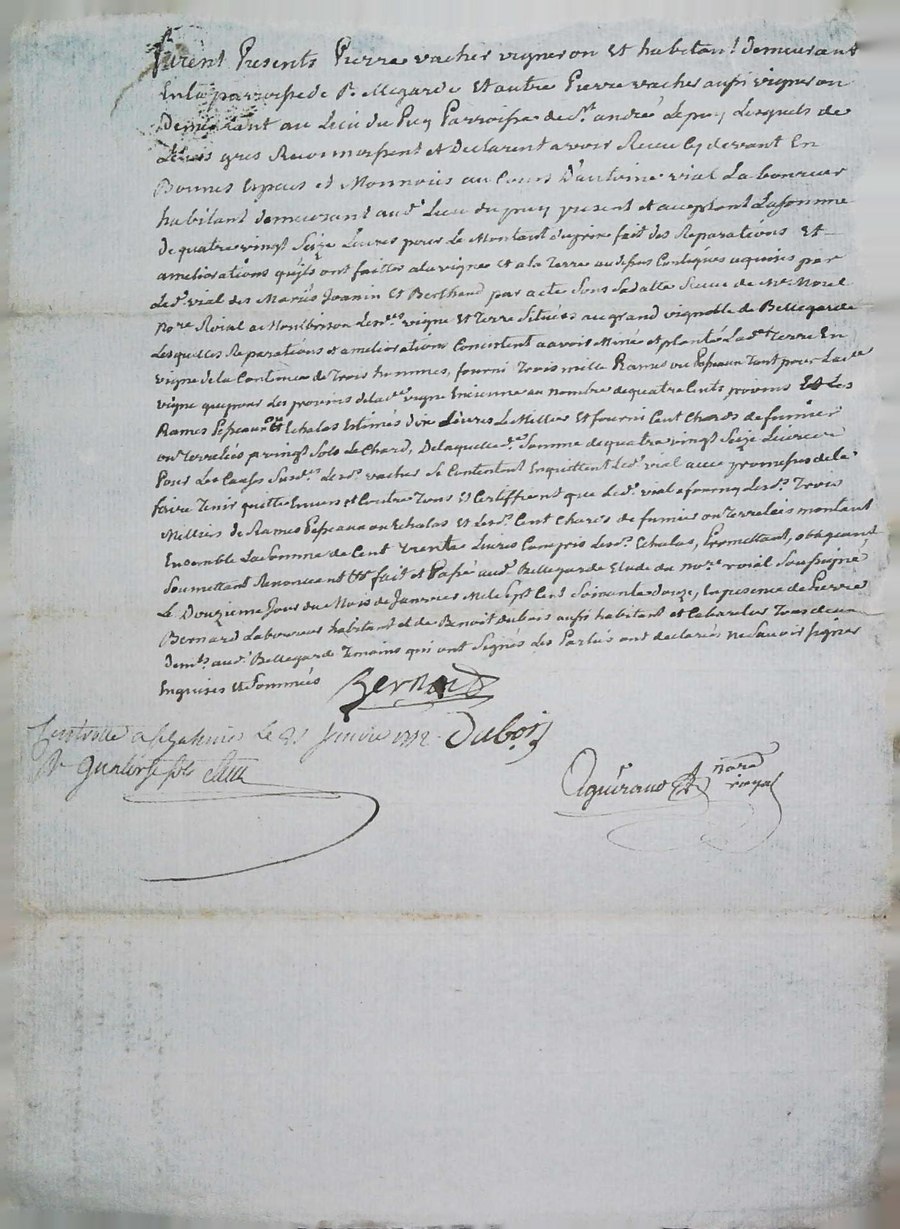 furent Presents Pierre vacher vigneron Et habitant demeurant
En la parroisse de Bellegarde Et autre Pierre vacher aussi vigneron
Demeurant au Lieu du Puy Parroisse de St. andré Le puy Lesquels de
Leurs grés Reconnoissent et Declarent avoir Receu Cy devant En
Bonnes Especes et Monnoies au Cours D'antoine vial Laboureur
habitant demeurant aud. Lieu du puy present et acceptant La somme
De quatre vingt Seize Livres pour Le Montant du prix fait des Reparations Et
ameliorations qu'ils ont faittes a la vigne et a la Terre au dessus Contigues aquises par
Led. vial des Mariés Joanin Et Berthand par acte Sous Sa datte Receu de Me. Morel
Nore. Roial a Montbrison Lesd.es vigne et Terre Situées au grand vignoble de Bellegarde
Lesquelles Reparations et ameliorations Consistent a avoir Miné et planté La d.e Terre En
vigne de la Contenue de Trois hommes, fourni Trois mille Rames ou Pesseaux Tant pour Lad.e
vigne que pour Les provins de la d.e vigne Encienne au nombre de quatre Cents provins Et Les
Rames Pesseaux Et Echalas Estimés dix Livres Le Millier Et fourni Cent Chards de fumier
ou Terrelées a vingt Sols Le Chard, De laquelle d.e Somme de quatre vingt Seize Livres
Pour Les Causes Susd.es Lesd. vacher Se Contentent Enquittent Led. vial avec promesses de le
faire Tenir quitte Envers et Contre Tous Et Certiffient que Led. vial a fourny Lesd. Trois
Milliers de Rames Pesseaux ou Echalas Et Lesd. Cent Chards de fumier ou Terrelées montant
Ensemble La Somme de Cent Trente Livres Compris Lesd. Echalas, Promettant, obligeant
Soumettant Renonceant Et fait et Passé aud. Bellegarde Etude du nore. roial Soussigné
Le Douzieme Jour du Mois de Janvier Mile Sept Cent Soixante douze, En presence de Pierre
Bernard Laboureur habitant et de Benoit dubois aussi habitant et Cabaretier Tous deux
dem.ts aud. Bellegarde Temoins qui ont Signés Les Parties ont declarées ne Savoir Signer
Enquises et Sommées
Bernard
Controlle a le 21 Janvier 1772 Dubois
R. quatorze sols
Aguiraud nore royal